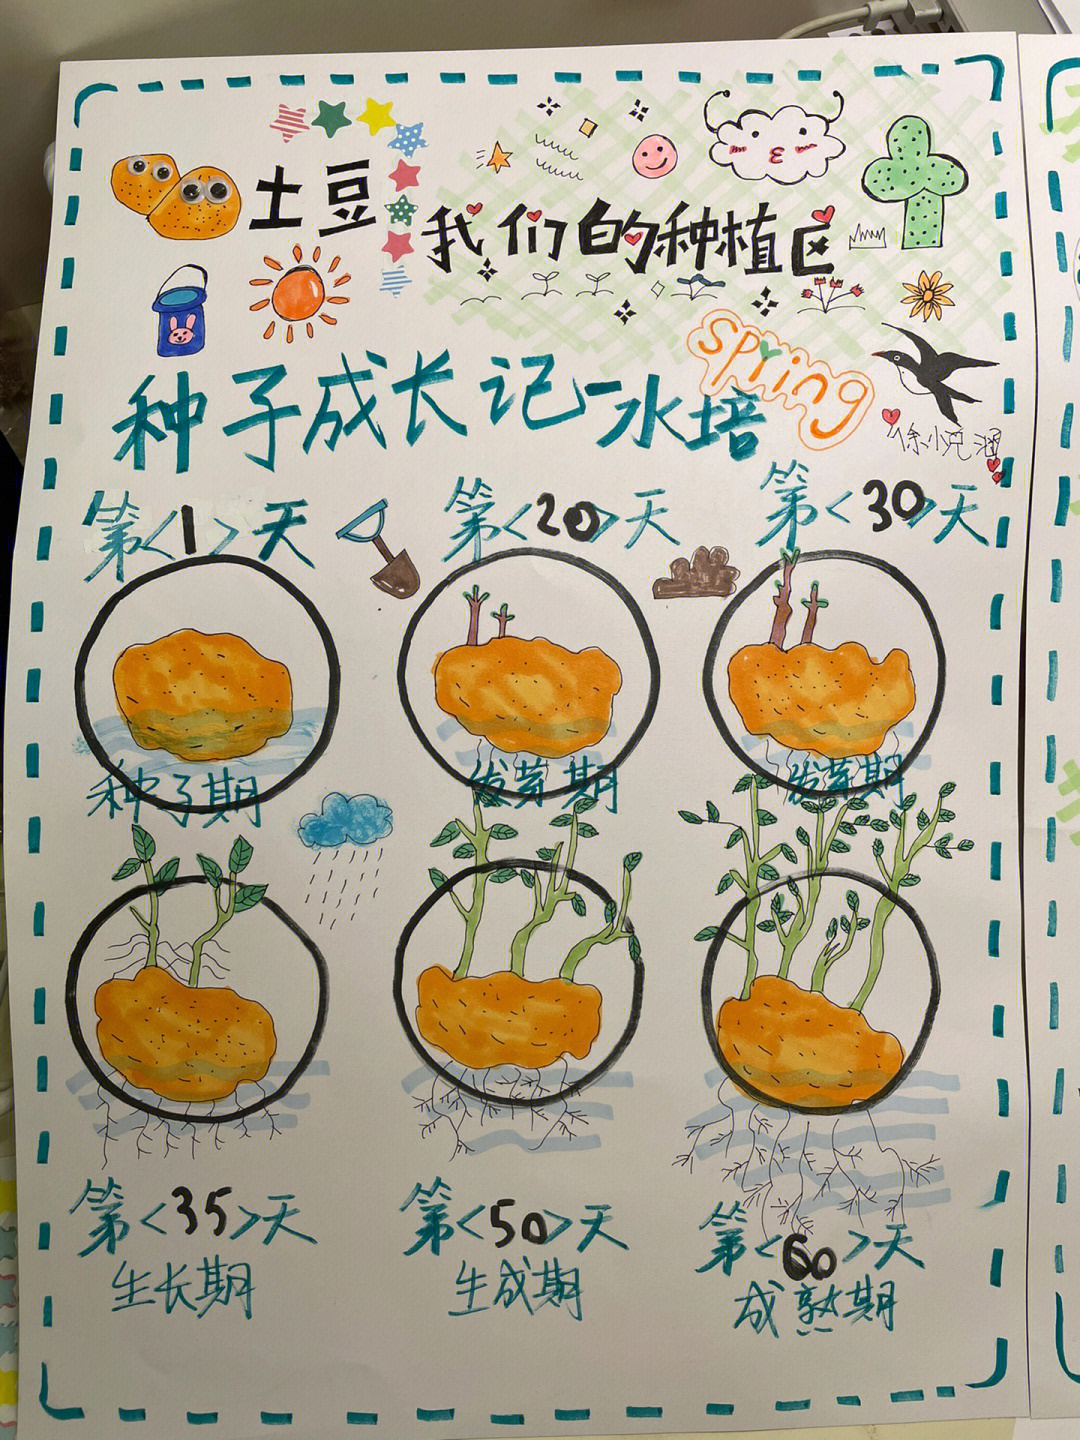 土豆
我们的种植区
spring
种子成长记-水培
第<1>天
第<20>天
第<30>天
种子期
发芽期
发芽期
第<35>天
第<50>天
第<60>天
生长期
生成期
成熟期